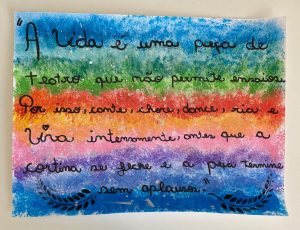 "A Vida é uma peça de
teatro que não permite ensaios.
Por isso, cante, chore, dance, ria e
Viva intensamente, antes que a
cortina se feche e a peça termine
sem aplausos."